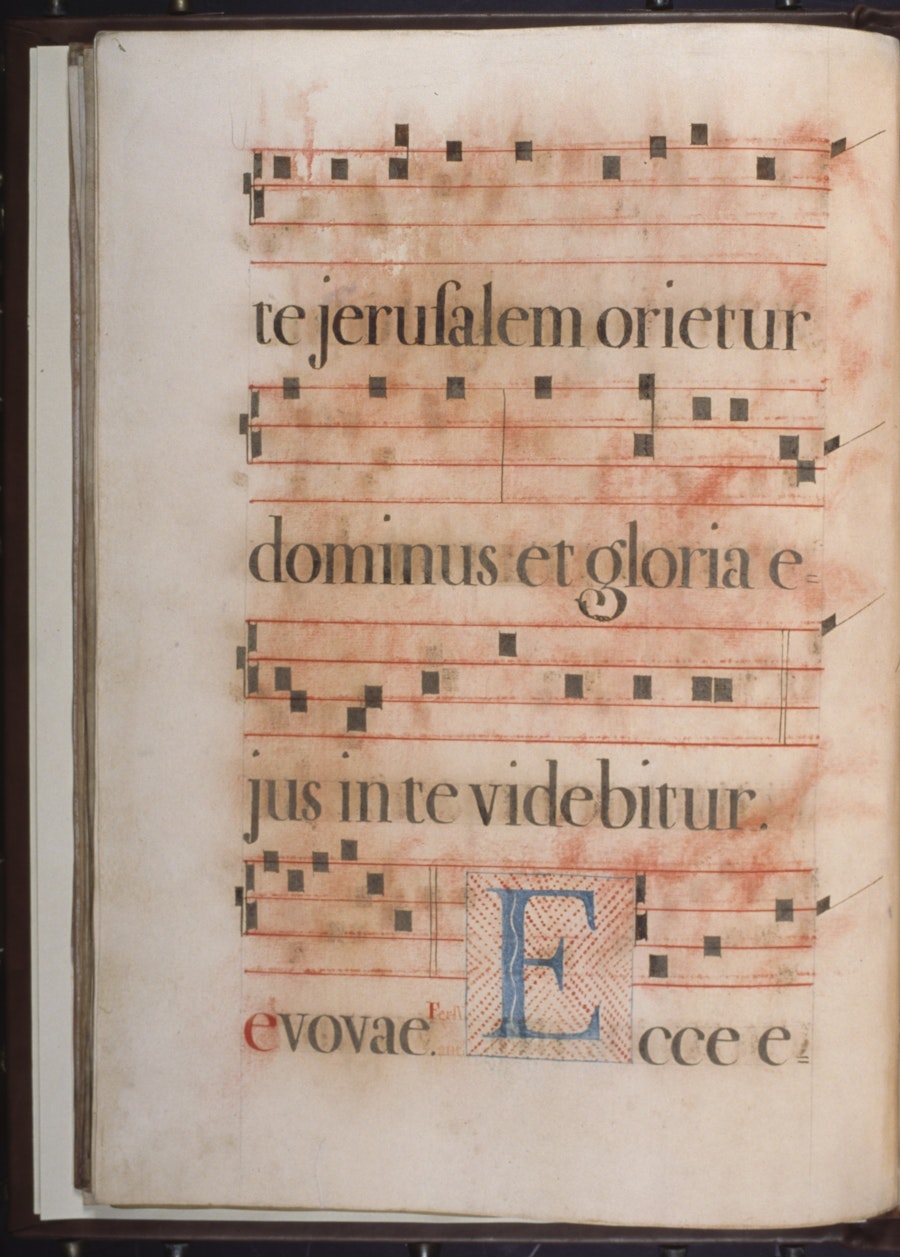 te jeruſalem orietur
dominus et gloria e=
jus in te videbitur.
evovae. Ecce e=